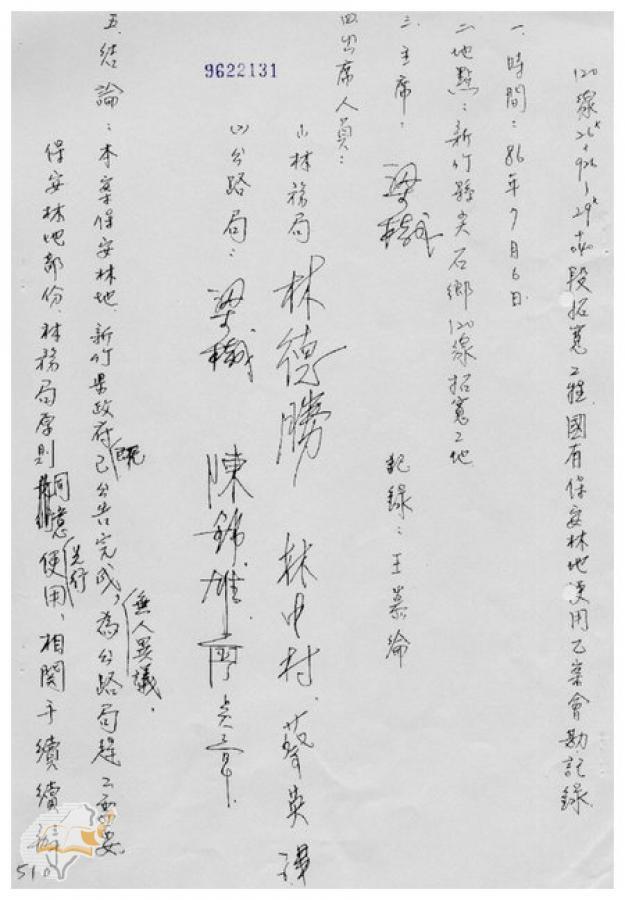 120線26K+926~29K+540段拓寬工程國有保安林地使用乙案會勘記錄
一、時間:86年9月6日
二、地點:新竹縣尖石鄉120線拓寬工地
三、主席:梁樾 記錄:王慕綸
四、出席人員:
(1)林務局 林德勝 林中村、蔡英
(2)公路局:梁樾 陳錦雄
9622131
五、結論:本案保安林地、新竹県政府既已公告完成,無人異議,為公路局趕工需要
保安林地部份,林務局原則同意先行使用,相關手續續辦
510